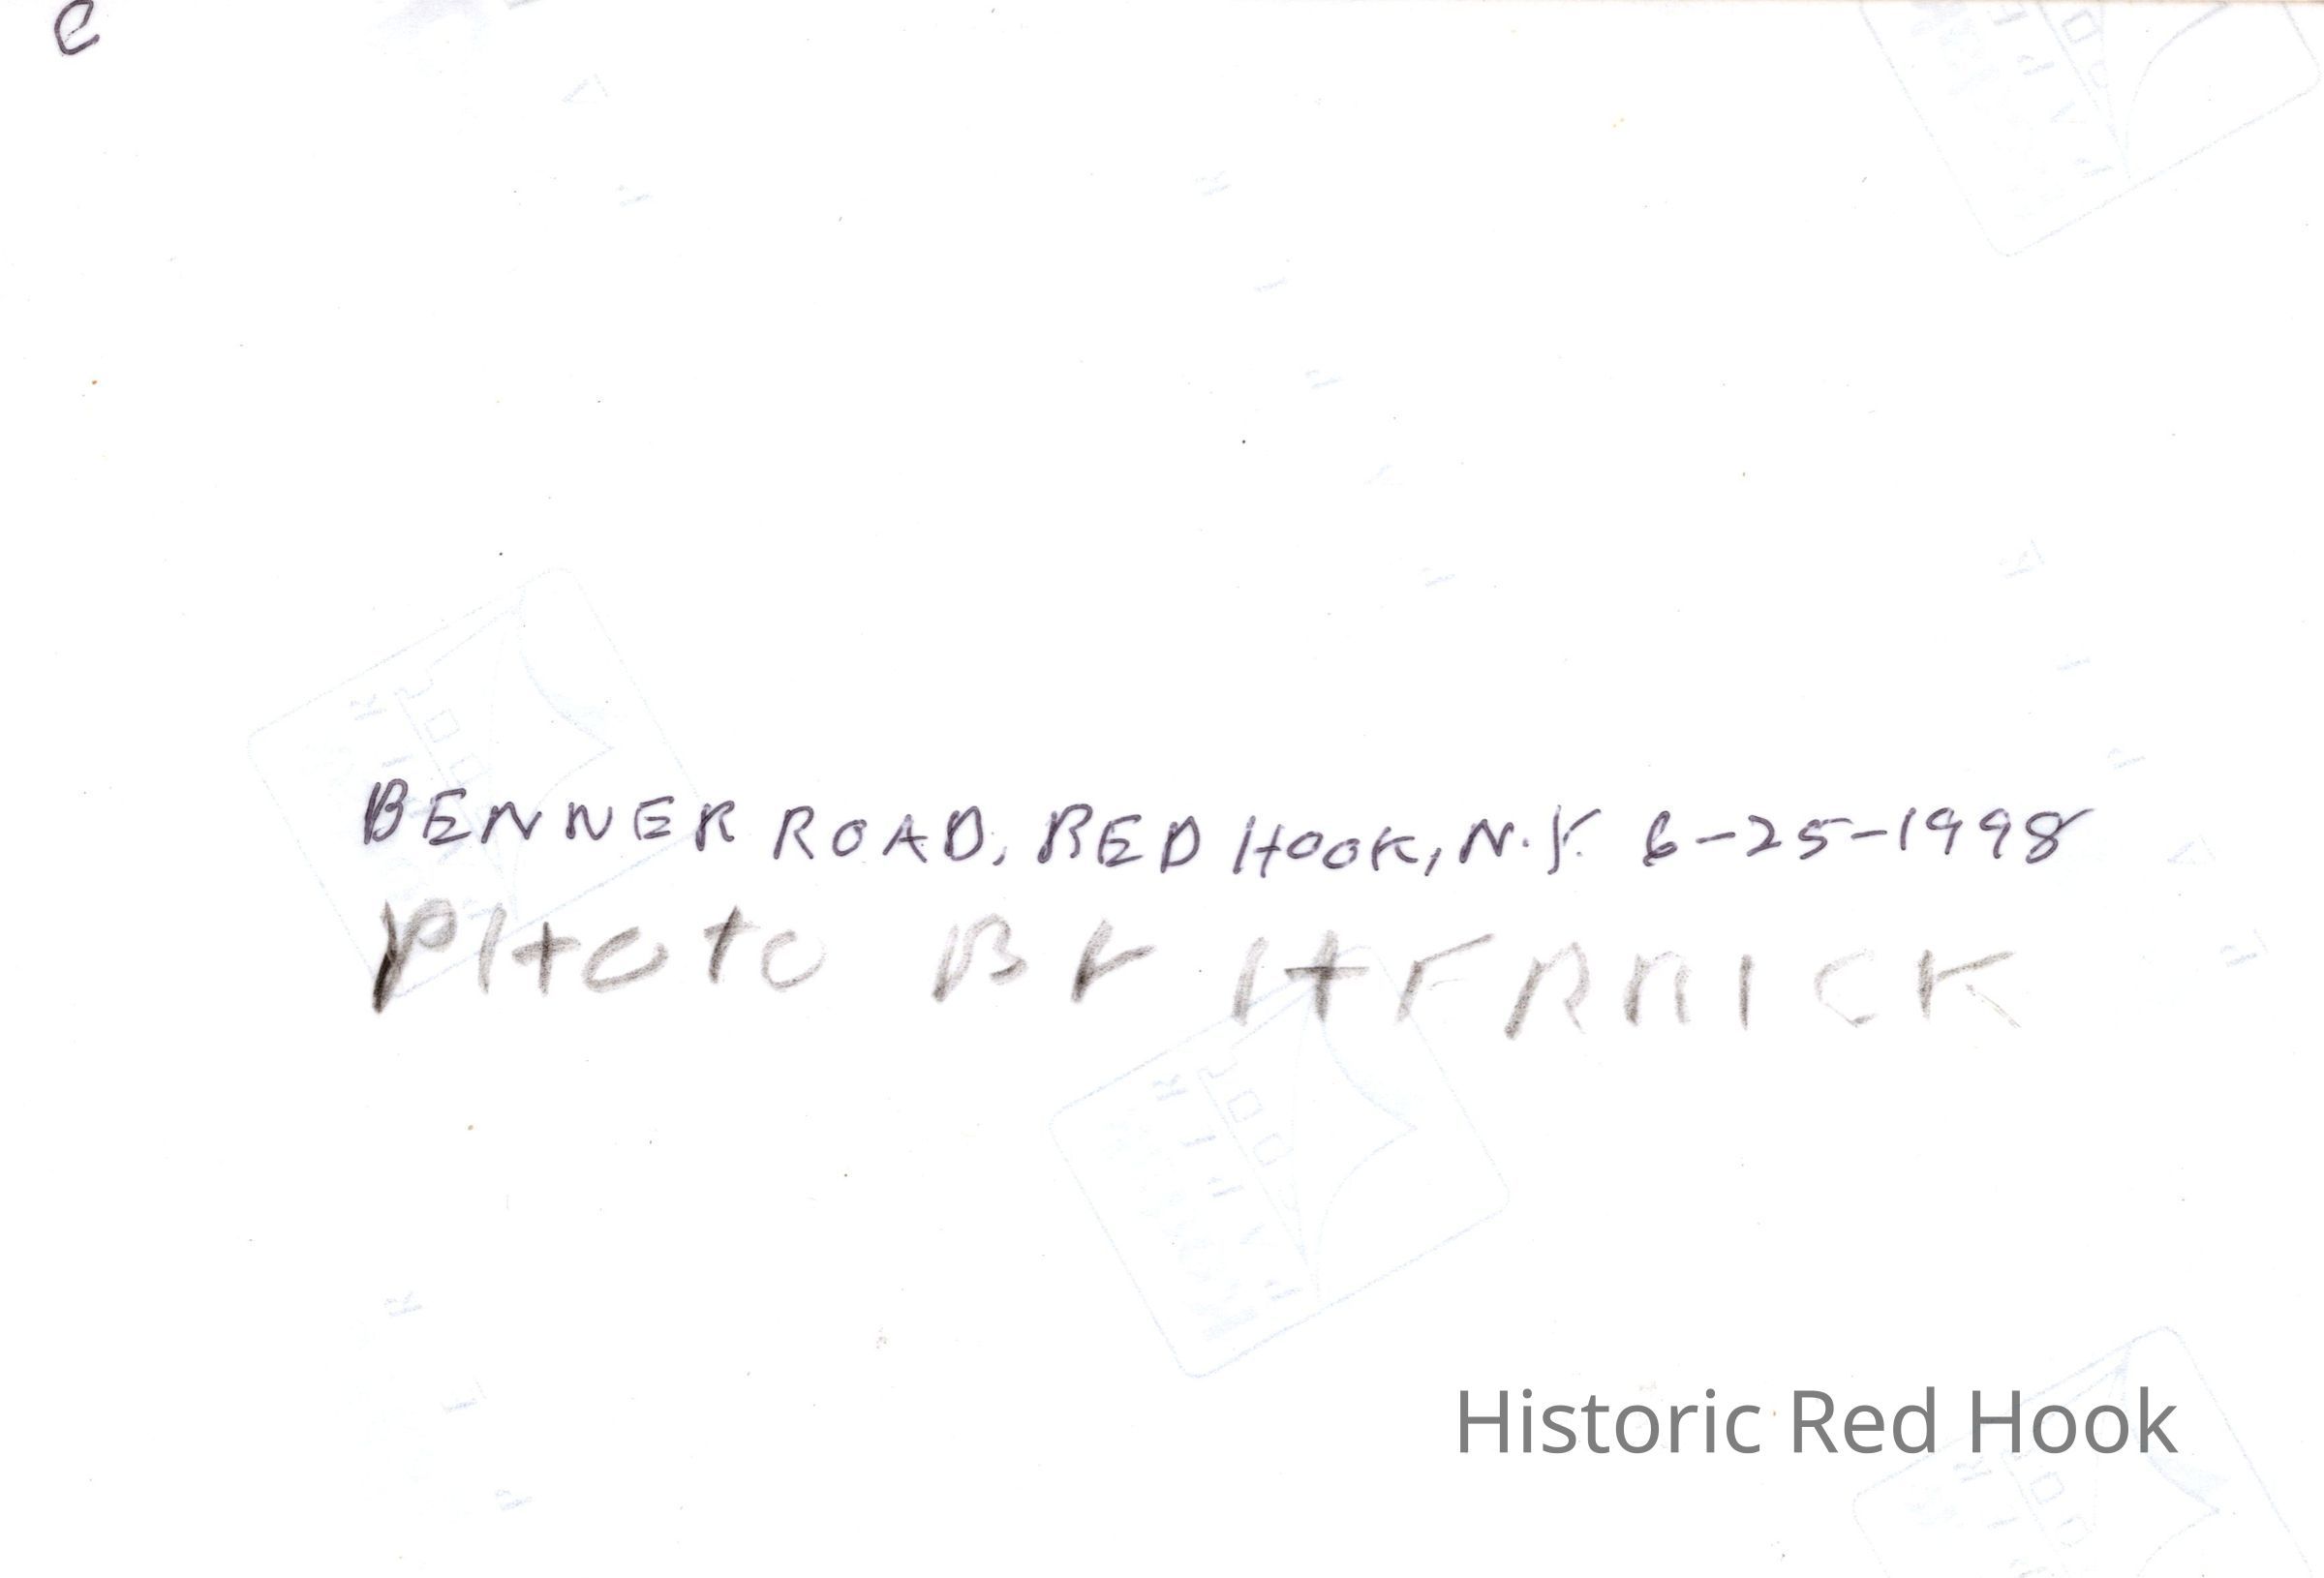 C
BENNER ROAD, RED HOOK, N.Y. 6-25-1998
PHOTO BY HERRICK
Historic Red Hook